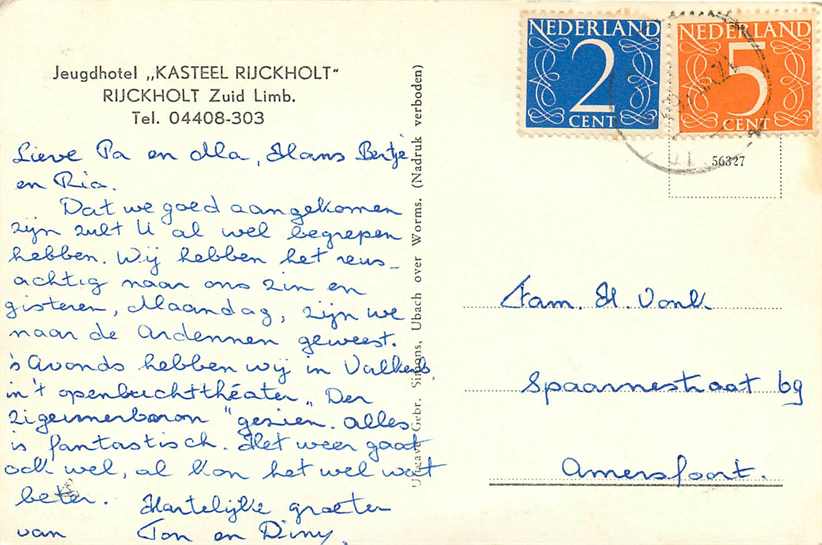 Jeugdhotel „KASTEEL RIJCKHOLT"
RIJCKHOLT Zuid Limb.
Tel. 04408-303
Lieve Pa en Ma, Hans Bertje
en Ria.
Dat we goed aangekomen
zijn zult U al wel begrepen
hebben. Wij hebben het reus-
achtig naar ons zin en
gisteren, Maandag, zijn we
naar de Ardennen geweest.
's Avonds hebben wij in Valkenb.
in 't openluchttheater „Der
zigeunerbaron" gezien. Alles
is fantastisch. Het weer gaat
ook wel, al kon het wel wat
beter. Hartelijke groeten
van Ton en Diny.
Uitgave Gebr. Simons, Ubach over Worms. (Nadruk verboden)
NEDERLAND
2
CENT
NEDERLAND
5
CENT
56327
Fam. H. Vonk
Spaarnestraat 69
Amersfoort.